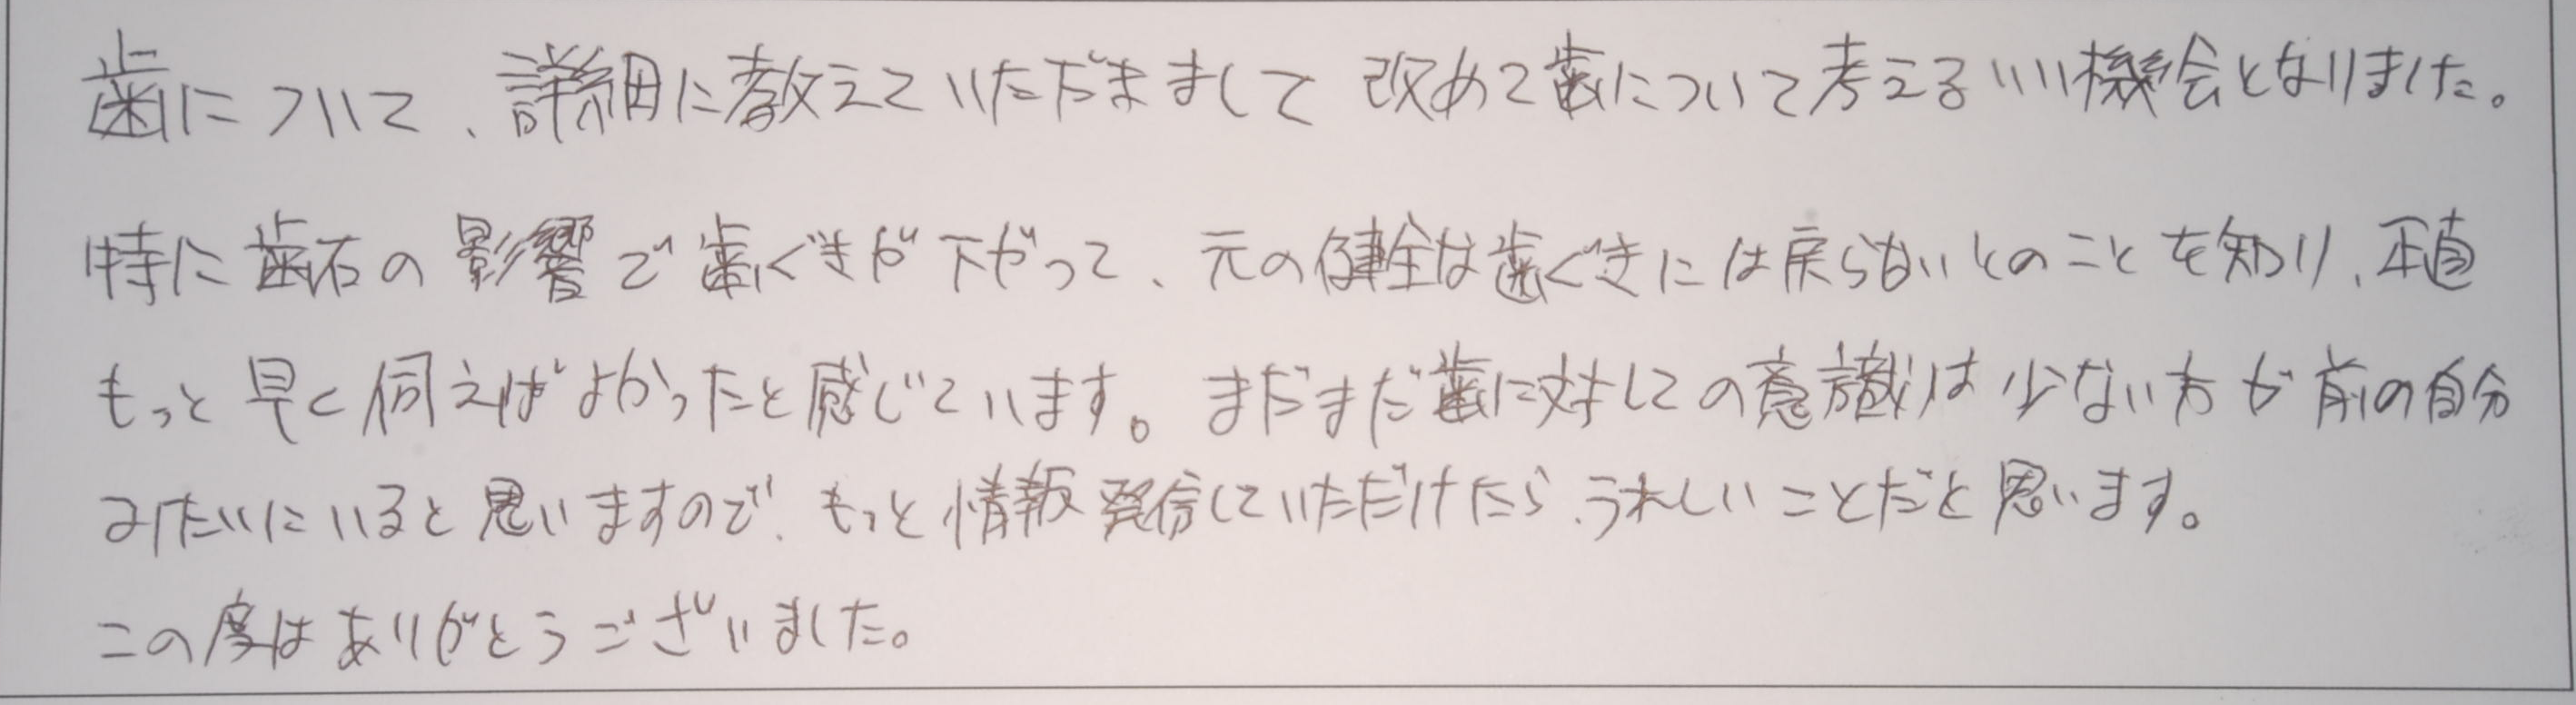 歯について、詳細に教えていただきまして 改めて歯について考えるいい機会となりました。
特に歯石の影響で歯ぐきが下がって、元の健全な歯ぐきには戻らないとのことを知り、正直
もっと早く伺えばよかったと感じています。まだまだ歯に対しての意識は少ない方が前の自分
みたいにいると思いますので、もっと情報発信していただけたら、うれしいことだと思います。
この度はありがとうございました。